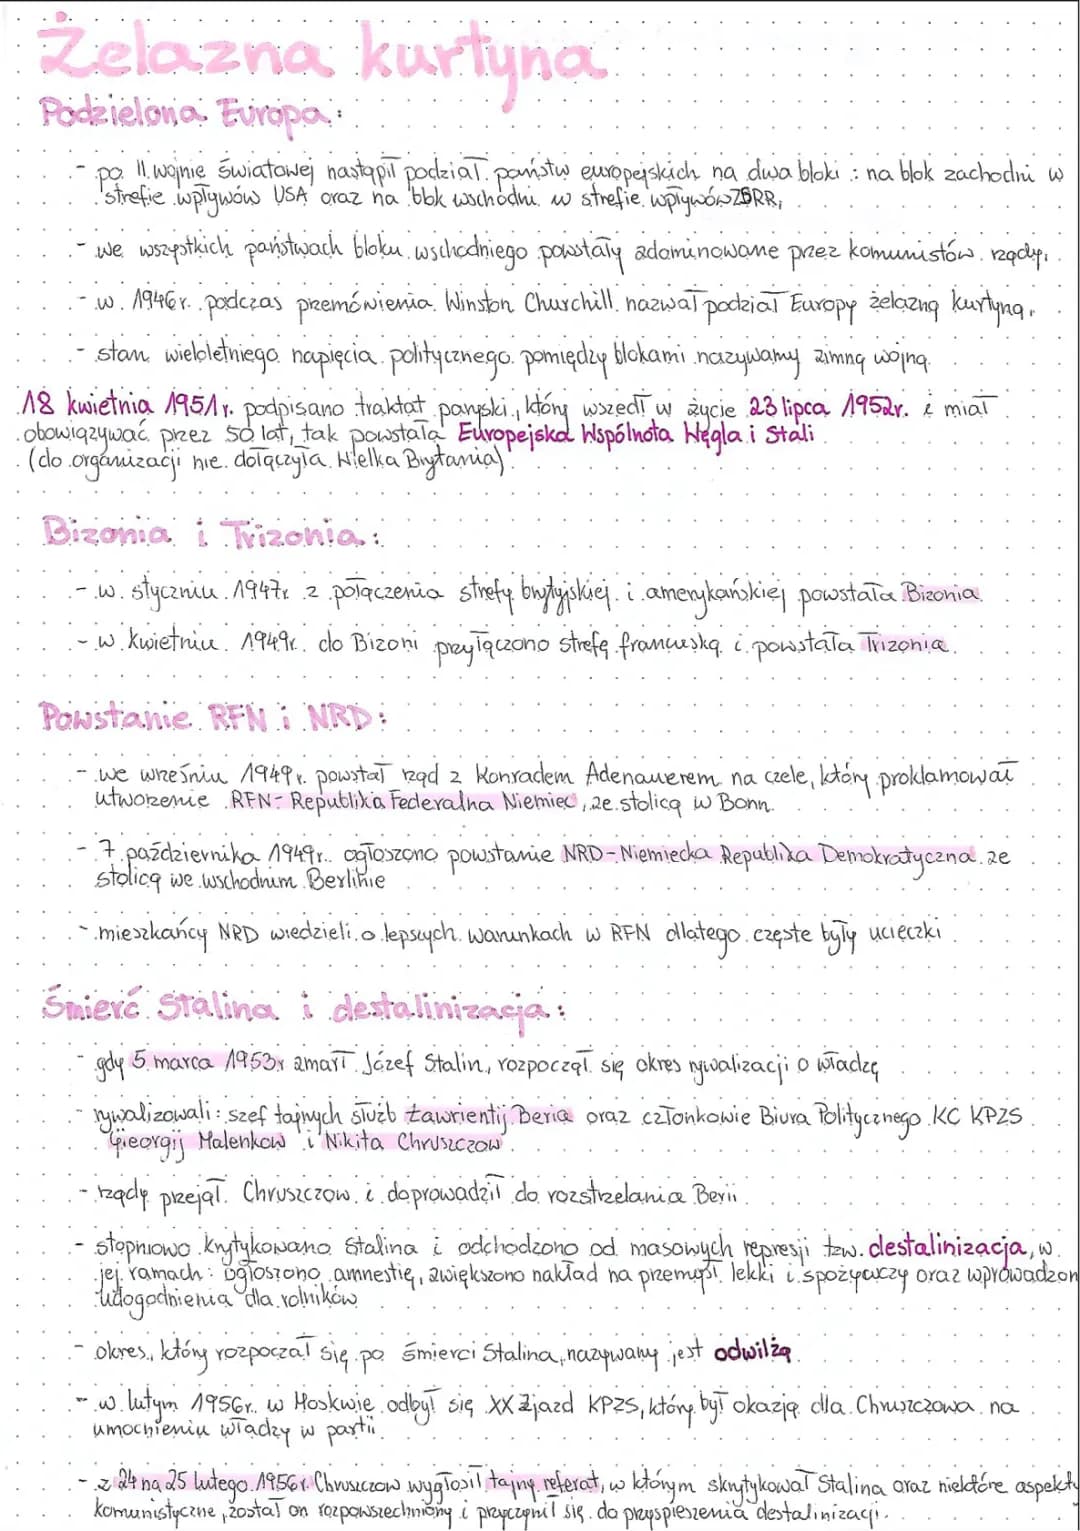 Żelazna kurtyna
Podzielona Europa:
- po II wojnie światowej nastąpił podział państw europejskich na dwa bloki: na blok zachodni w
strefie wpływów USA oraz na blok wschodni w strefie wpływów ZSRR,
- we wszystkich państwach bloku wschodniego powstały zdominowane przez komunistów rządy,
- w 1946r. podczas przemówienia Winston Churchill nazwał podział Europy żelazną kurtyną,
- stan wieloletniego napięcia politycznego pomiędzy blokami nazywamy zimną wojną.
18 kwietnia 1951r. podpisano traktat paryski, który wszedł w życie 23 lipca 1952r. i miał
obowiązywać przez 50 lat, tak powstała Europejska Wspólnota Węgla i Stali
(do organizacji nie dołączyła Wielka Brytania).
Bizonia i Trizonia:
- w styczniu 1947r z połączenia strefy brytyjskiej i amerykańskiej powstała Bizonia.
- w kwietniu 1949r. do Bizoni przyłączono strefę francuską i powstała Trizonia.
Powstanie RFN i NRD:
- we wrześniu 1949r. powstał rząd z Konradem Adenauerem na czele, który proklamował
utworzenie RFN- Republika Federalna Niemiec, ze stolicą w Bonn.
- 7 października 1949r. ogłoszono powstanie NRD- Niemiecka Republika Demokratyczna ze
stolicą we wschodnim Berlinie
- mieszkańcy NRD wiedzieli o lepszych warunkach w RFN dlatego częste były ucieczki.
Śmierć Stalina i destalinizacja:
- gdy 5 marca 1953r zmarł Józef Stalin, rozpoczął się okres rywalizacji o władzę
- rywalizowali: szef tajnych służb Ławrientij Beria oraz członkowie Biura Politycznego KC KPZS
Gieorgij Malenkow i Nikita Chruszczow.
- rządy przejął Chruszczow i doprowadził do rozstrzelania Berii.
- stopniowo krytykowano Stalina i odchodzono od masowych represji tzw. destalinizacja, w
jej ramach: ogłoszono amnestię, zwiększono nakład na przemysł lekki i spożywczy oraz wprowadzon
udogodnienia dla rolników
- okres, który rozpoczął się po śmierci Stalina, nazywany jest odwilżą.
- w lutym 1956r. w Moskwie odbył się XX Zjazd KPZS, który był okazją dla Chruszczowa na
umocnieniu władzy w partii.
- z 24 na 25 lutego 1956r. Chruszczow wygłosił tajny referat, w którym skrytykował Stalina oraz niektóre aspekty
komunistyczne, został on rozpowszechniony i przyczynił się do przyspieszenia destalinizacji.